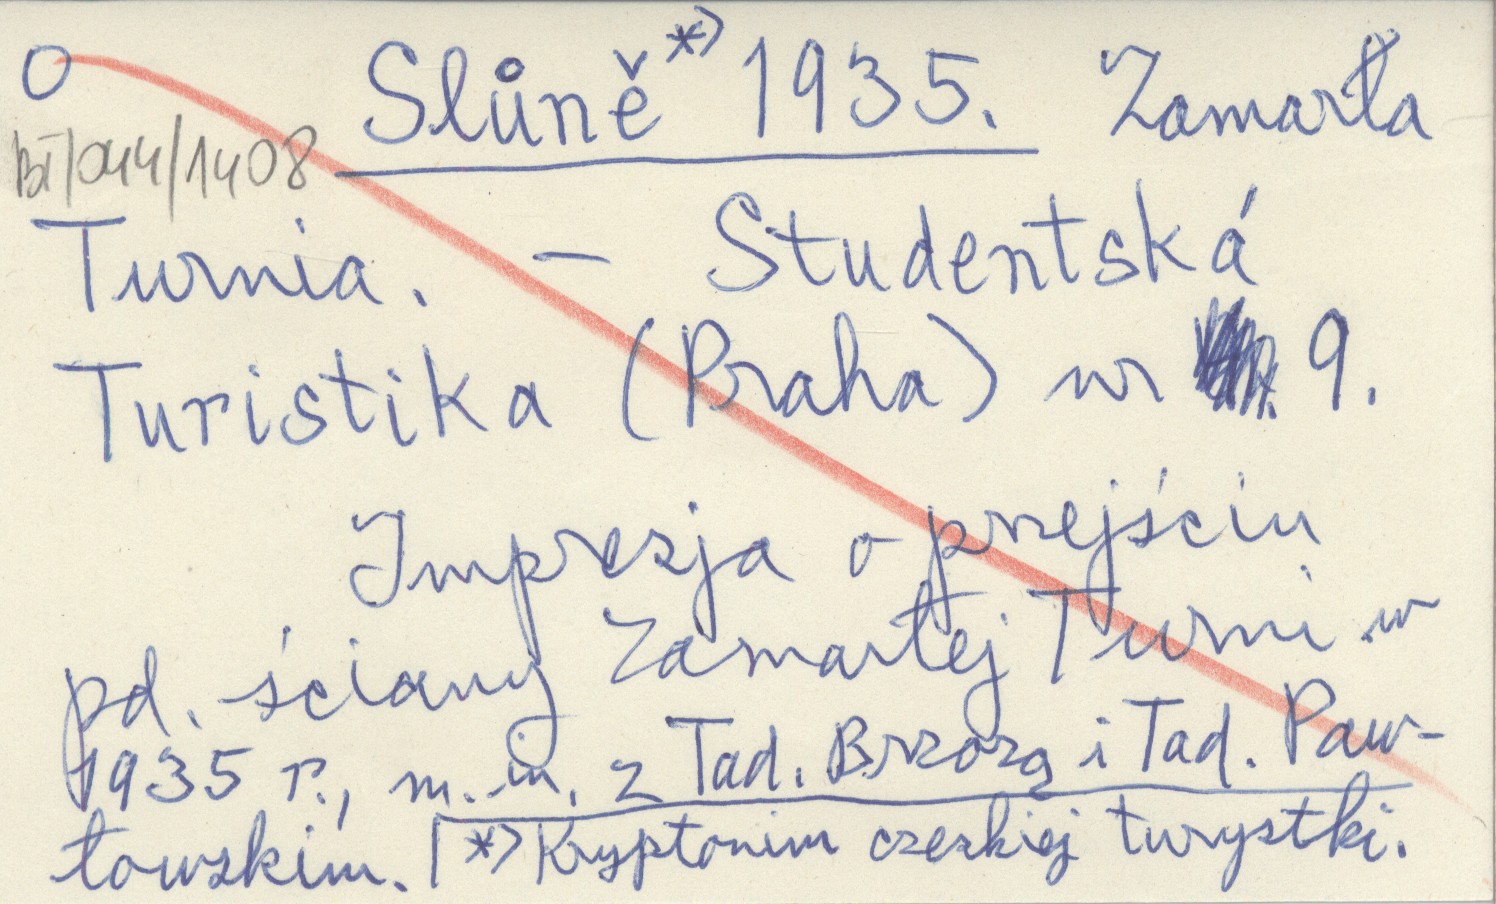 O Slůně*) 1935. Zamarła
BI/044/1408
Turnia. – Studentská
Turistika (Praha) nr 9.
Impresja o przejściu
pd. ściany Zamarłej Turni w
1935 r., m.in. z Tad. Brzozą i Tad. Paw-
łowskim. *) Kryptonim czeskiej turystki.